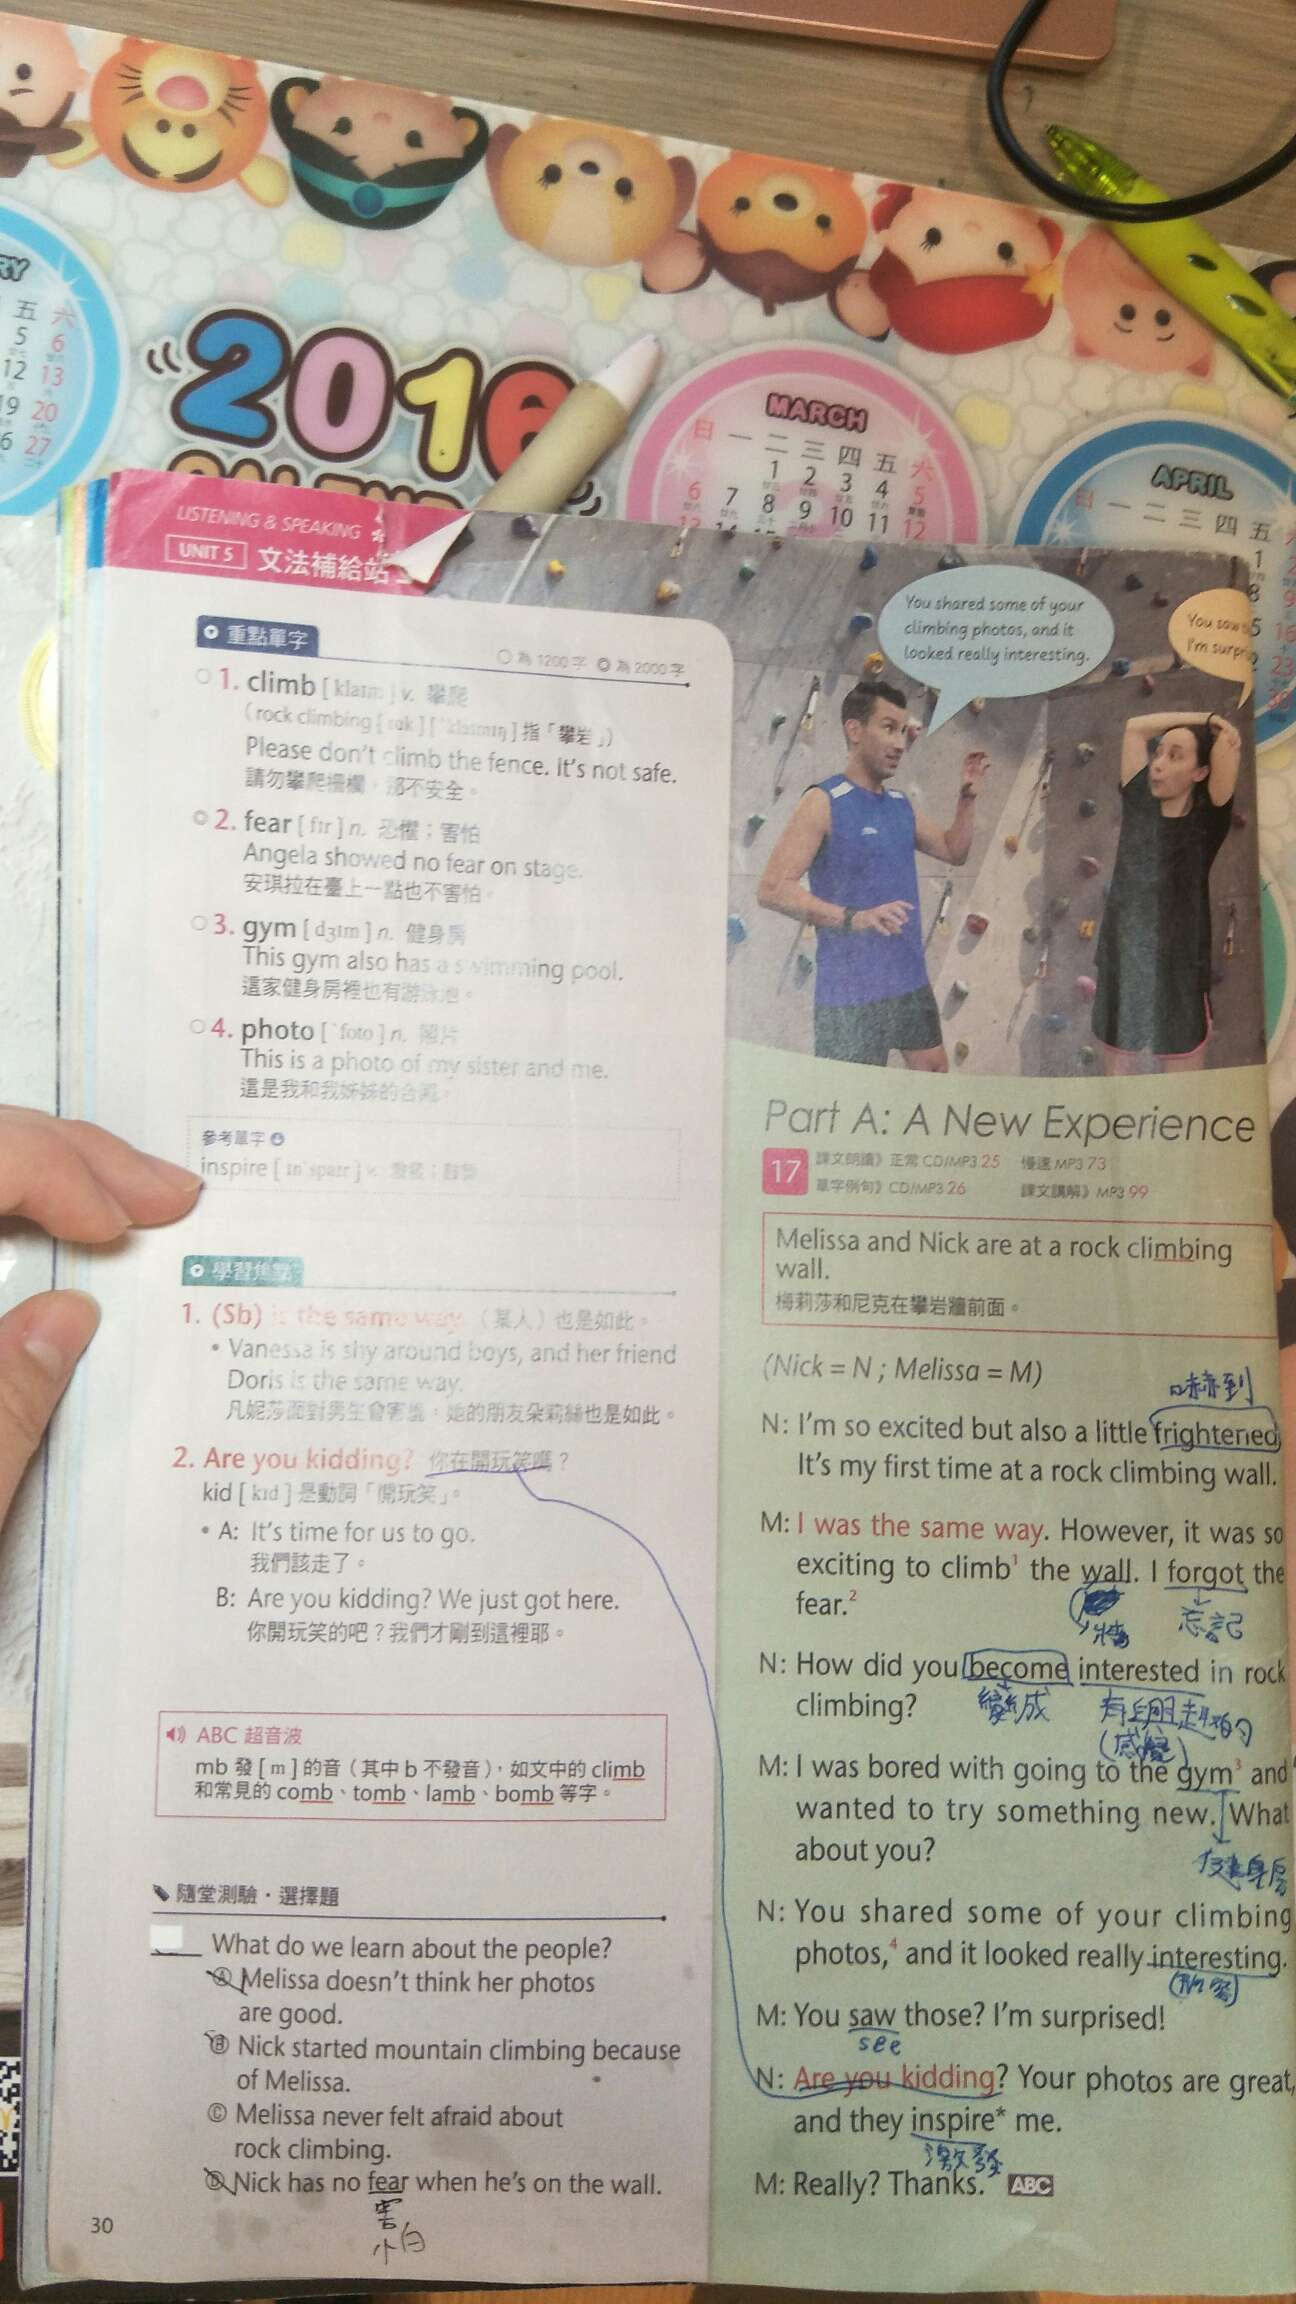 RY
五 六
5 6
12 13
19 20
6 27
2016
MARCH
日 一 二 三 四 五 六
1 2 3 4 5
6 7 8 9 10 11 12
APRIL
日 一 二 三 四 五
1
8
LISTENING & SPEAKING
UNIT 5 文法補給站
重點單字
○ 為 1200 字 ◎ 為 2000 字
○ 1. climb [ klaɪm ] v. 攀爬
( rock climbing [ rɑk ] [ ˋklaɪmɪŋ ] 指「攀岩」)
Please don't climb the fence. It's not safe.
請勿攀爬柵欄，那不安全。
◎ 2. fear [ fɪr ] n. 恐懼；害怕
Angela showed no fear on stage.
安琪拉在臺上一點也不害怕。
○ 3. gym [ dʒɪm ] n. 健身房
This gym also has a swimming pool.
這家健身房裡也有游泳池。
○ 4. photo [ ˋfoto ] n. 照片
This is a photo of my sister and me.
這是我和我姊姊的合照。
參考單字
inspire [ ɪnˋspaɪr ] v.
學習焦點
1. (Sb) is the same way. （某人）也是如此。
• Vanessa is shy around boys, and her friend
Doris is the same way.
凡妮莎面對男生會害羞，她的朋友朵莉絲也是如此。
2. Are you kidding? 你在開玩笑嗎？
kid [ kɪd ] 是動詞「開玩笑」。
• A: It's time for us to go.
我們該走了。
B: Are you kidding? We just got here.
你開玩笑的吧？我們才剛到這裡耶。
ABC 超音波
mb 發 [ m ] 的音（其中 b 不發音），如文中的 climb
和常見的 comb、tomb、lamb、bomb 等字。
隨堂測驗・選擇題
What do we learn about the people?
Ⓐ Melissa doesn't think her photos
are good.
Ⓑ Nick started mountain climbing because
of Melissa.
Ⓒ Melissa never felt afraid about
rock climbing.
Ⓓ Nick has no fear when he's on the wall.
害
怕
30
You shared some of your
climbing photos, and it
looked really interesting.
You saw
I'm surpri
Part A: A New Experience
17 課文朗讀》正常 CD/MP3 25 慢速 MP3 73
單字例句》CD/MP3 26 課文講解》MP3 99
Melissa and Nick are at a rock climbing
wall.
梅莉莎和尼克在攀岩牆前面。
(Nick = N ; Melissa = M)
嚇到
N: I'm so excited but also a little frightened.
It's my first time at a rock climbing wall.
M: I was the same way. However, it was so
exciting to climb¹ the wall. I forgot the
fear.²
牆 忘記
N: How did you become interested in rock
climbing?
變成 有興趣的
M: I was bored with going to the gym³ and
wanted to try something new. What
about you?
健身房
N: You shared some of your climbing
photos,⁴ and it looked really interesting.
M: You saw those? I'm surprised!
see
N: Are you kidding? Your photos are great,
and they inspire* me.
激發
M: Really? Thanks. ABC